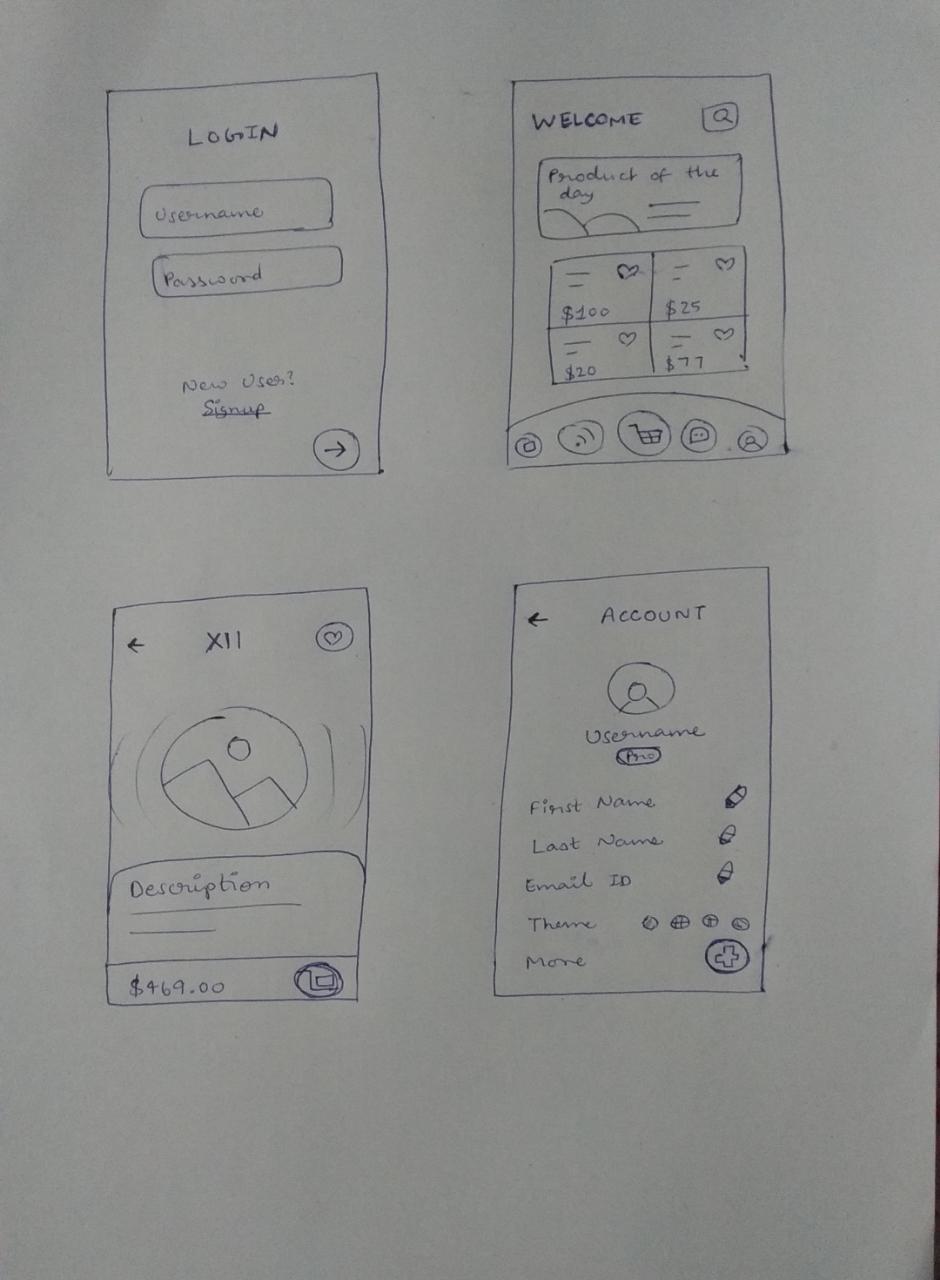 LOGIN
Username
Password
New User?
Signup
WELCOME
Product of the
day
$100
$25
$20
$77
XII
Description
$469.00
ACCOUNT
Username
Pro
First Name
Last Name
Email ID
Theme
More